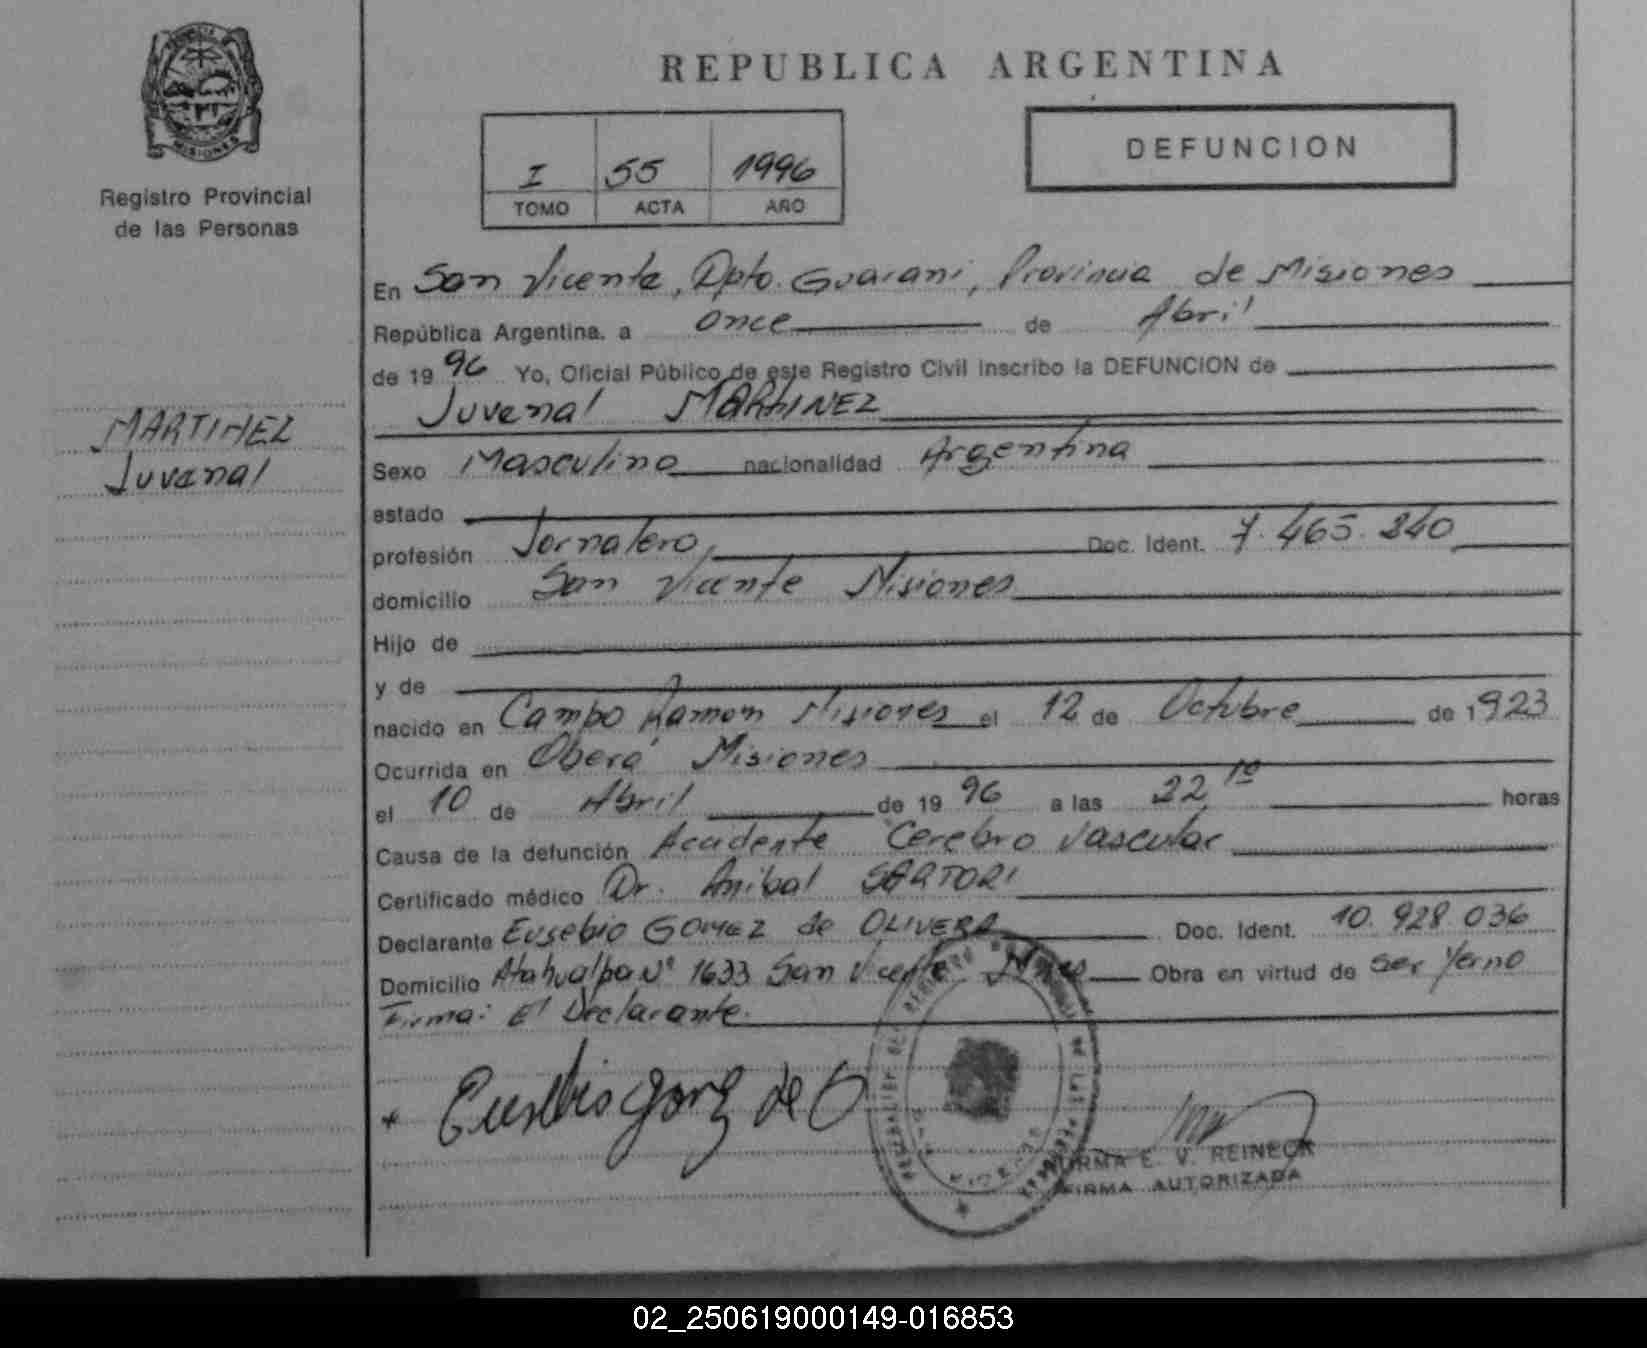 REPUBLICA ARGENTINA
MISIONES
Registro Provincial
de las Personas
I 55 1996
TOMO ACTA AÑO
DEFUNCION
En San Vicente, Dpto. Guarani, Provincia de Misiones
República Argentina, a once de Abril
de 1996 Yo, Oficial Público de este Registro Civil inscribo la DEFUNCION de
Juvenal MARTINEZ
MARTINEZ
Juvenal
Sexo Masculino nacionalidad Argentina
estado
profesión Jornalero, Doc. Ident. 7.465.240
domicilio San Vicente Misiones
Hijo de
y de
nacido en Campo Ramon Misiones el 12 de Octubre de 1923
Ocurrida en Oberá Misiones
el 10 de Abril de 1996 a las 22,10 horas
Causa de la defunción Accidente Cerebro Vascular
Certificado médico Dr. Anibal SARTORI
Declarante Eusebio GOMEZ de OLIVERA Doc. Ident. 10.928.036
Domicilio Atahualpa Nº 1633 San Vicente Mnes Obra en virtud de ser Yerno
Firma: El Declarante.
Eusebio Gomez de O
NORMA E. V. REINECK
FIRMA AUTORIZADA
02_250619000149-016853